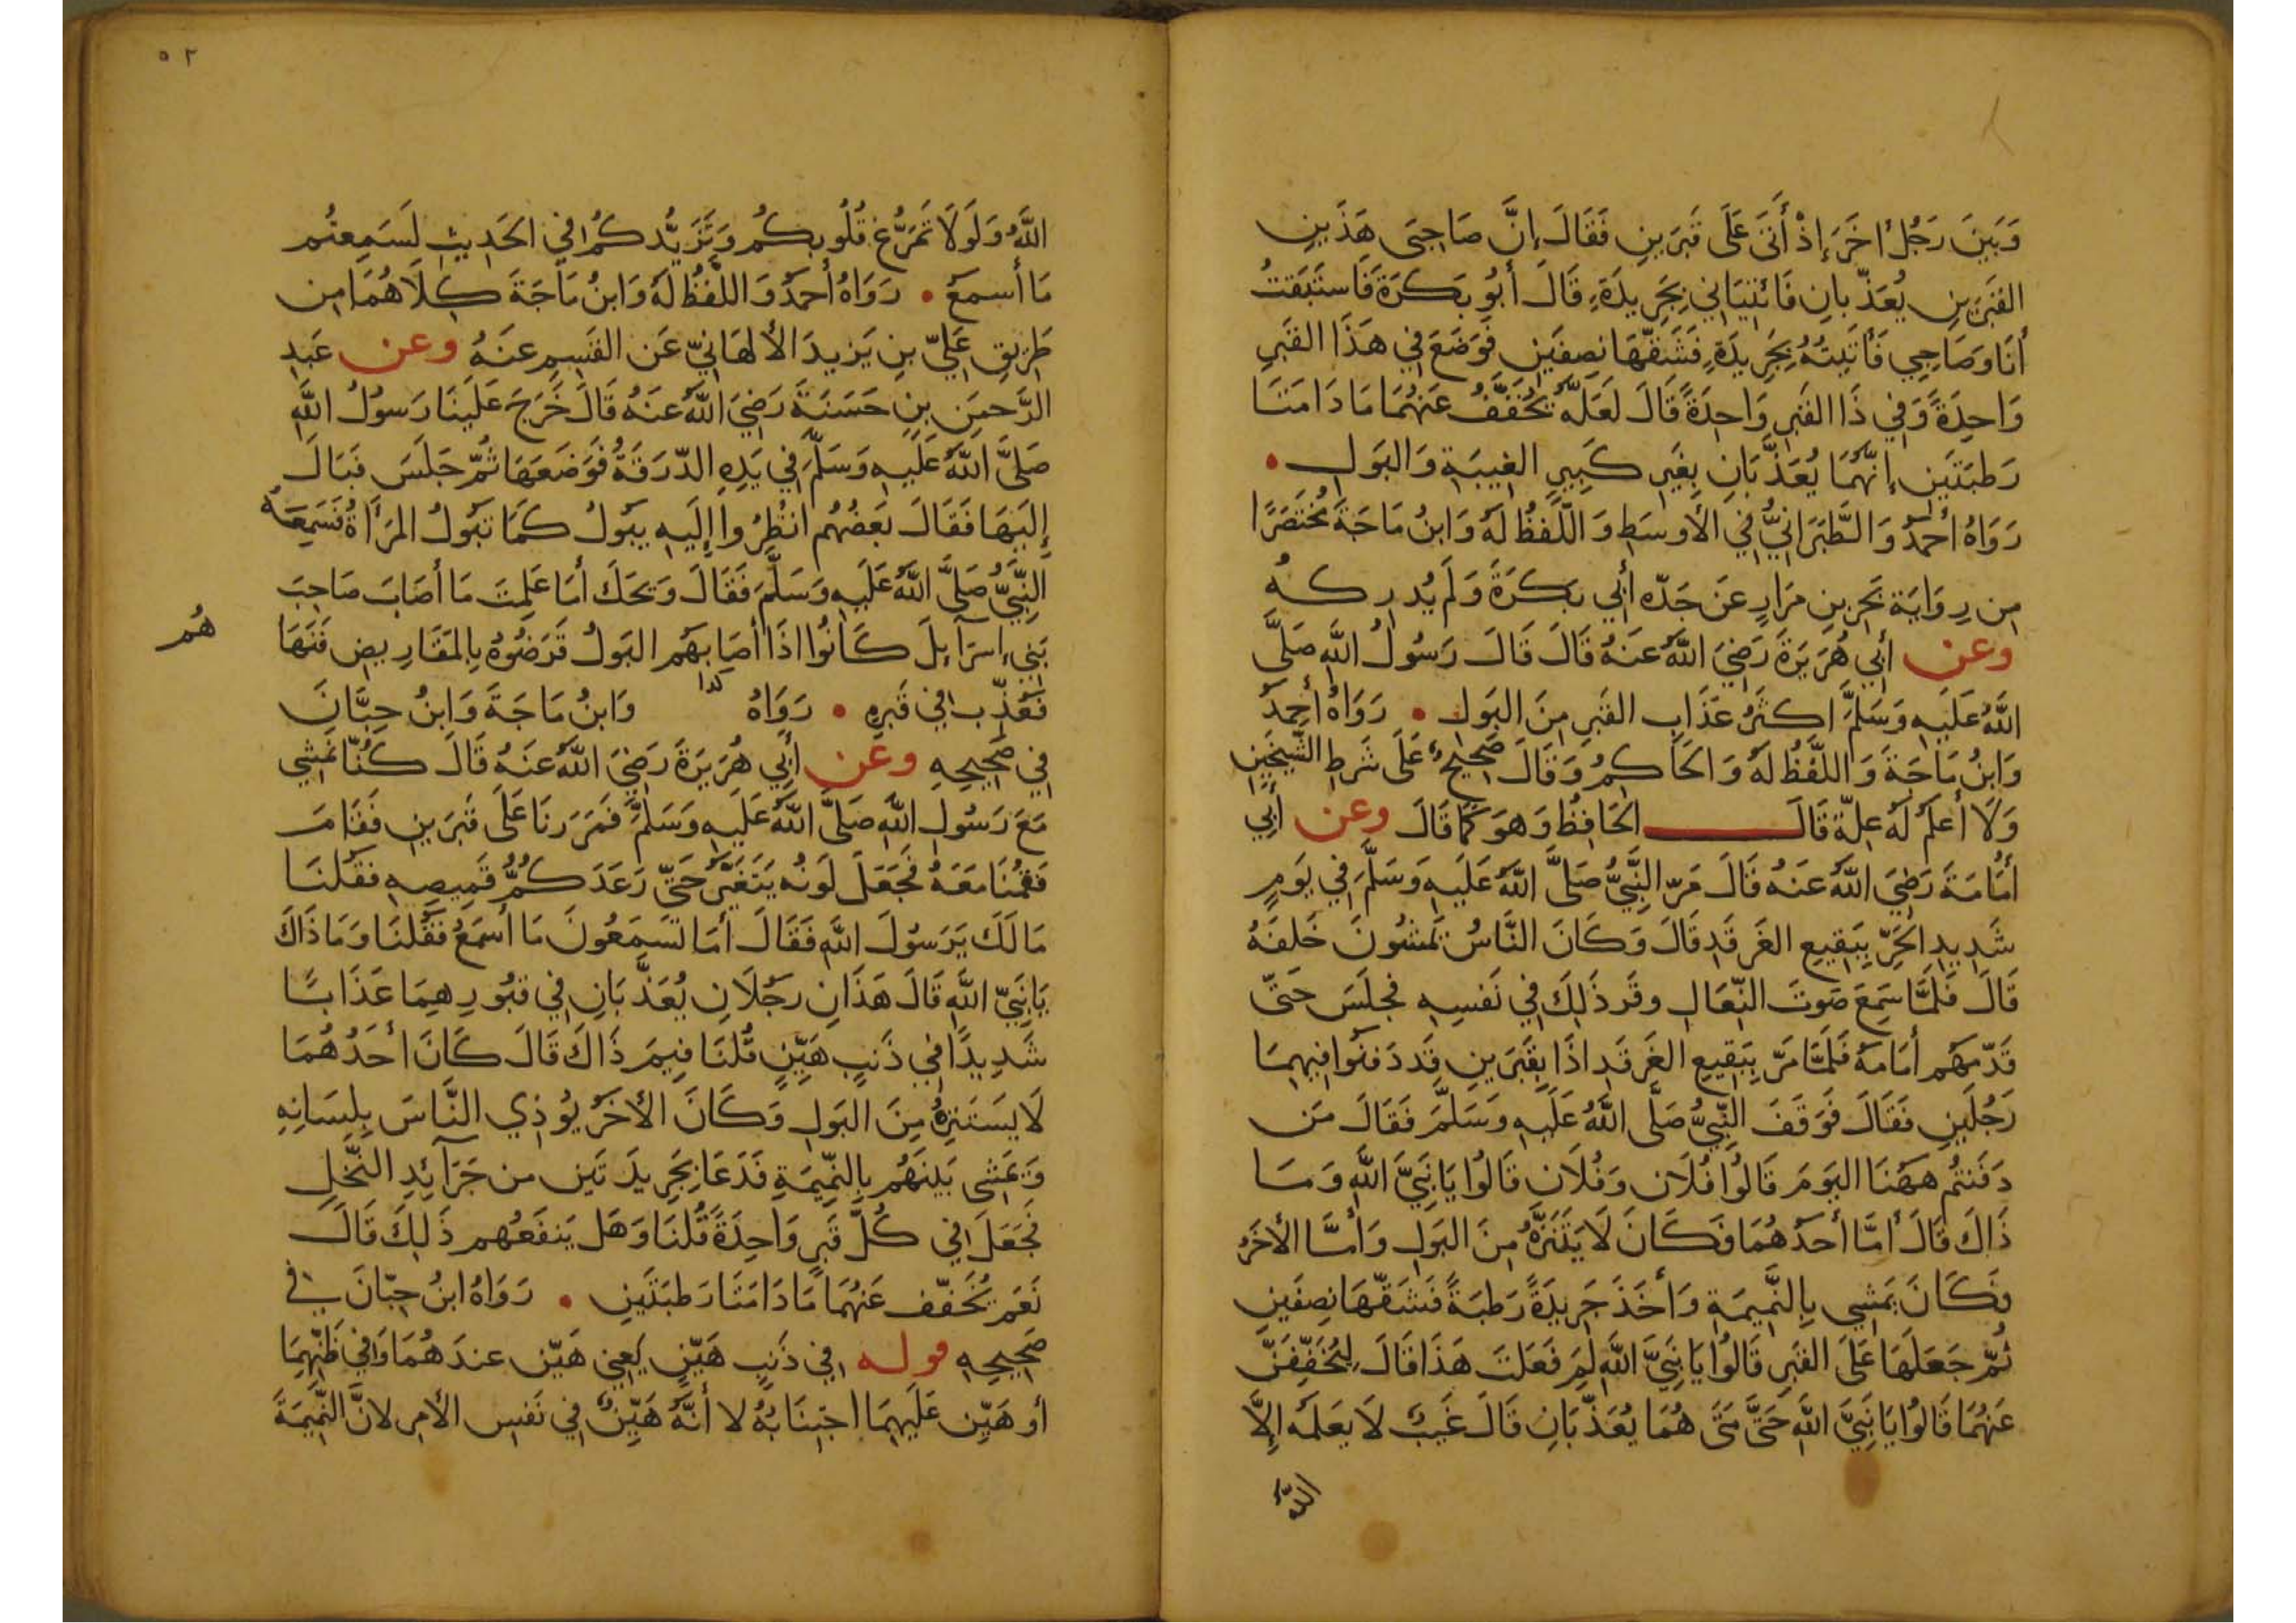 وَبَينَ رَجُلٍ اخَرَ إذْ أَتَى عَلَى قَبَرَينِ فَقَالَ إنَّ صَاحِبَى هَذَينِ
القَبَرَينِ يُعَذَّبانِ فَائتِيَانِي بِجَرِيدَةٍ، قَالَ أَبُو بَكَرَةَ فَاستَبَقتُ
أنَا وَصَاحِبِي فَأتَيتُهُ بِجَرِيدَةٍ فَشَقَّهَا نِصفَينِ فَوَضَعَ فِي هَذَا القَبَرِ
وَاحِدَةً وَفِي ذَا القَبَرِ وَاحِدَةً قَالَ لَعَلَّهُ يُخَفَّفُ عَنهُمَا مَا دَامَتَا
رَطبَتَينِ إنَّهُمَا يُعَذَّبَانِ بِغَيرِ كَبِيرٍ الغِيبَةِ وَالبَولِ •
رَوَاهُ أحمَدُ وَالطَّبَرَانِيُّ فِي الأوسَطِ وَاللَّفظُ لَهُ وَابنُ مَاجَةَ مُختَصَرًا
مِن رِوَايَةِ بَحرِ بنِ مَرَارٍ عَن جَدِّه أبِي بَكرَةَ وَلَم يُدرِكهُ
وعن أبِي هُرَيَرَةَ رَضِيَ اللَّهُ عَنهُ قَالَ قَالَ رَسُولُ اللَّهِ صَلَّى
اللَّهُ عَلَيهِ وَسَلَّمَ اكثَرُ عَذَابِ القَبَرِ مِنَ البَولِ • رَوَاهُ أحمَدُ
وَابنُ مَاجَةَ وَاللَّفظُ لَهُ وَالحَاكِمُ وَقَالَ صَحِيحٌ عَلَى شَرطِ الشَّيخَينِ
وَلَا أعلَمُ لَهُ عِلَّةً قَالَ الحَافِظُ وَهوَ كَمَا قَالَ وعن أبِي
أمَامَةَ رَضِيَ اللَّهُ عَنهُ قَالَ مَرَّ النَّبِيُّ صَلَّى اللَّهُ عَلَيهِ وَسَلَّمَ فِي يَومٍ
شَدِيدِ الحَرِّ بِبَقِيعِ الغَرقَدِ قَالَ وَكَانَ النَّاسُ يَمشُونَ خَلفَهُ
قَالَ فَلَمَّا سَمِعَ صَوتَ النِّعَالِ وقَر ذَلِكَ فِي نَفسِهِ فجَلَسَ حَتَّى
قَدَّمَهُم أمَامَهُ فَلَمَّا مَرَّ بِبَقِيعِ الغَرقَدِ اذَا بِقَبرَينِ قَد دَفَنُوا فِيهِمَا
رَجُلَينِ فَقَالَ فَوَقَفَ النَّبِيُّ صَلَّى اللَّهُ عَلَيهِ وَسَلَّمَ فَقَالَ مَن
دَفَنتُم هَهُنَا اليَومَ قَالُوا فُلَان وَفُلَان قَالُوا يَا نَبِيَّ اللَّهِ وَمَا
ذَاكَ قَالَ أمَّا أحَدُهُمَا فَكَانَ لَا يَتَنَزَّهُ مِنَ البَولِ وَأمَّا الأخَرُ
فَكَانَ يَمشِي بِالنَّمِيمَةِ وَأخَذَ جَرِيدَةً رَطبَةً فَشَقَّهَا نِصفَينِ
ثُمَّ جَعَلَهَا عَلَى القَبرِ قَالُوا يَا نَبِيَّ اللَّهِ لِمَ فَعَلتَ هَذَا قَالَ لِيُخَفَّفَنَّ
عَنهُمَا قَالُوا يَا نَبِيَّ اللَّهِ حَتَّى مَتَى هُمَا يُعَذَّبَانِ قَالَ غَيبٌ لَا يَعلَمُه إلَّا
اللَّهُ
٥٢
اللَّهُ وَلَولَا تَمَرُّغ قُلُوبِكُم وَتَزَيُّدكُم فِي الحَدِيثِ لَسَمِعتُم
مَا أسمَعُ • رَوَاهُ أحمَدُ وَاللَّفظُ لَهُ وَابنُ مَاجَةَ كِلَاهُمَا مِن
طَرِيقِ عَلِيِّ بنِ يَزِيدَ الألهَانِيِّ عَن القَسِمِ عَنهُ وعن عَبدِ
الرَّحمَنِ بنِ حَسَنَةَ رَضِيَ اللَّهُ عَنهُ قَالَ خَرَجَ عَلَينَا رَسُولُ اللَّهِ
صَلَّى اللَّهُ عَلَيهِ وَسَلَّمَ فِي يَدِهِ الدَّرَقَةُ فَوَضَعَهَا ثُمَّ جَلَسَ فَبَالَ
إلَيهَا فَقَالَ بَعضُهُم انظُرُوا إلَيهِ يبُولُ كَمَا تَبُولُ المَرأَةُ فَسَمِعَهُ
النَّبِيُّ صَلَّى اللَّهُ عَلَيهِ وَسَلَّمَ فَقَالَ وَيحَكَ أمَا عَلِمتَ مَا أصَابَ صَاحِبَ
بَنِي إسرَآءِيلَ كَانُوا اذَا أصَابَهُم البَولُ قَرَضُوهُ بِالمَقَارِيضِ فَنَهَا
هُم
فَعُذِّبَ فِي قَبرِهِ • رَوَاهُ كذا وَابنُ مَاجَةَ وَابنُ حِبَّانَ
فِي صَحِيحِهِ وعن أبِي هُرَيَرَةَ رَضِيَ اللَّهُ عَنهُ قَالَ كُنَّا نَمشِي
مَعَ رَسُولِ اللَّهِ صَلَّى اللَّهُ عَلَيهِ وَسَلَّمَ فَمَرَرنَا عَلَى قَبرَينِ فَقَامَ
فَقُمنَا مَعَهُ فَجَعَلَ لَونُه يَتَغَيَّرُ حَتَّى رَعَدَ كُمُّ قَمِيصِهِ فَقُلنَا
مَا لَكَ يَرَسُولَ اللَّهِ فَقَالَ أمَا تَسمَعُونَ مَا أسمَعُ فَقُلنَا وَمَا ذَاكَ
يَا نَبِيَّ اللَّهِ قَالَ هَذَانِ رَجُلَانِ يُعَذَّبَانِ فِي قبُورِهِمَا عَذَابًا
شَدِيدًا فِي ذَنبٍ هَيِّنٍ قُلنَا فِيمَ ذَاكَ قَالَ كَانَ أحَدُهُمَا
لَا يَستَنزِهُ مِنَ البَولِ وَكَانَ الأخَرُ يُوذِي النَّاسَ بِلِسَانِهِ
وَيَمشِى بَينَهُم بِالنَّمِيمَةِ فَدَعَا بِجَرِيدَتَينِ من جَرَآئِدِ النَّخلِ
فَجَعَلَ فِي كُلِّ قَبرٍ وَاحِدَةً قُلنَا وَهَل يَنفَعُهم ذَلِكَ قَالَ
نَعَم يُخَفّف عَنهُمَا مَا دَامَتَا رَطبَتَينِ • رَوَاهُ ابنُ حِبَّانَ فِي
صَحِيحِهِ قوله فِي ذَنبٍ هَيِّنٍ يَعنِي هَيِّن عندَهُمَا وَفِي ظَنِّهِمَا
أو هَيِّن عَلَيهِمَا اجتِنَابُهُ لا أنَّهُ هَيِّنٌ فِي نَفسِ الأمرِ لانَّ النَّمِيمَةَ